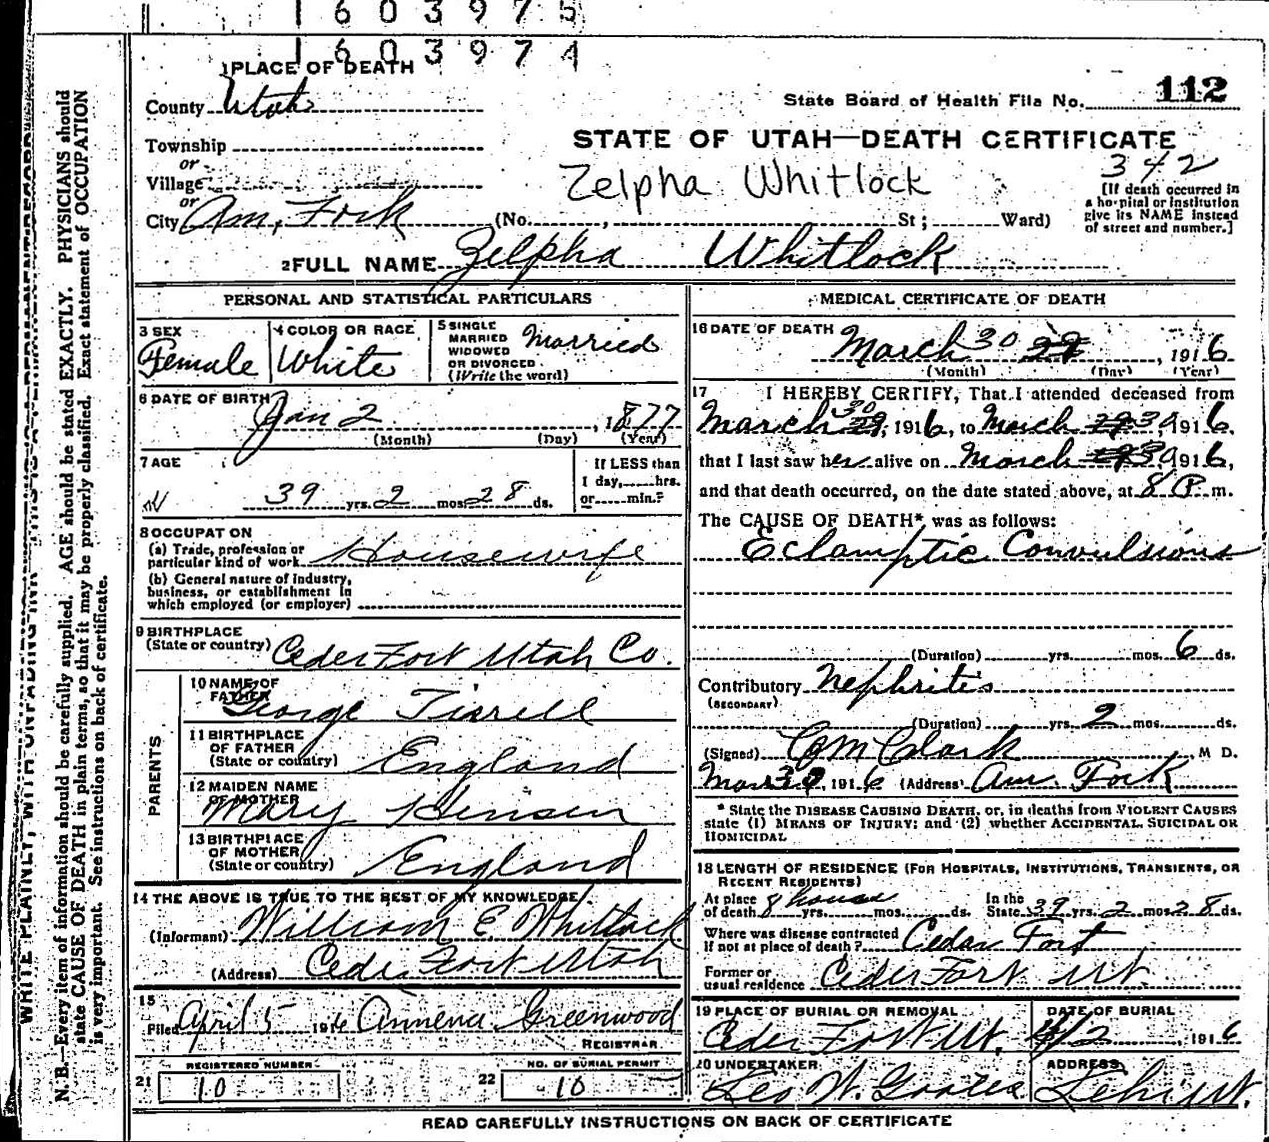 1603975
1603974
1 PLACE OF DEATH
County Utah
State Board of Health File No. 112
Township
STATE OF UTAH—DEATH CERTIFICATE
or
Village
Zelpha Whitlock
342
or
City Am. Fork (No. , St; Ward)
[If death occurred in
a hospital or institution
give its NAME instead
of street and number.]
2 FULL NAME Zelpha Whitlock
PERSONAL AND STATISTICAL PARTICULARS
3 SEX Female
4 COLOR OR RACE White
5 SINGLE
MARRIED
WIDOWED
OR DIVORCED
(Write the word)
Married
6 DATE OF BIRTH
Jan 2, 1877
(Month) (Day) (Year)
7 AGE
39 yrs. 2 mos. 28 ds.
If LESS than
1 day, hrs.
or min.?
8 OCCUPATION
(a) Trade, profession or
particular kind of work Housewife
(b) General nature of industry,
business, or establishment in
which employed (or employer)
9 BIRTHPLACE
(State or country) Ceder Fort Utah Co.
PARENTS
10 NAME OF
FATHER George Tirrell
11 BIRTHPLACE
OF FATHER
(State or country) England
12 MAIDEN NAME
OF MOTHER Mary
13 BIRTHPLACE
OF MOTHER
(State or country) England
14 THE ABOVE IS TRUE TO THE BEST OF MY KNOWLEDGE
(Informant) William E Whitlock
(Address) Ceder Fort Utah
15
Filed April 5 1916 Annena Greenwood
REGISTRAR
REGISTERED NUMBER
21 10
NO. OF BURIAL PERMIT
22 10
MEDICAL CERTIFICATE OF DEATH
16 DATE OF DEATH
March 30 29, 1916
(Month) (Day) (Year)
17 I HEREBY CERTIFY, That I attended deceased from
March 30 29, 1916, to March 29 30, 1916,
that I last saw her alive on March 29 30, 1916,
and that death occurred, on the date stated above, at 8 P. m.
The CAUSE OF DEATH* was as follows:
Eclamptic Convulsions
(Duration) yrs. mos. 6 ds.
Contributory Nephritis
(SECONDARY)
(Duration) yrs. 2 mos. ds.
(Signed) C M Clark, M D.
Mar 30, 1916 (Address) Am. Fork
* State the DISEASE CAUSING DEATH, or, in deaths from VIOLENT CAUSES
state (1) MEANS OF INJURY; and (2) whether ACCIDENTAL, SUICIDAL OR
HOMICIDAL
18 LENGTH OF RESIDENCE (FOR HOSPITALS, INSTITUTIONS, TRANSIENTS, OR
RECENT RESIDENTS)
At place
of death 8 hours yrs. mos. ds.
In the
State 39 yrs. 2 mos. 28 ds.
Where was disease contracted
if not at place of death? Cedar Fort
Former or
usual residence Ceder Fort Ut.
19 PLACE OF BURIAL OR REMOVAL
Ceder Fort Ut.
DATE OF BURIAL
4/2, 1916
20 UNDERTAKER
Leo W. Goates
ADDRESS
Lehi Ut.
READ CAREFULLY INSTRUCTIONS ON BACK OF CERTIFICATE
WRITE PLAINLY, WITH UNFADING INK
N. B.—Every item of information should be carefully supplied. AGE should be stated EXACTLY. PHYSICIANS should
state CAUSE OF DEATH in plain terms, so that it may be properly classified. Exact statement of OCCUPATION
is very important. See instructions on back of certificate.